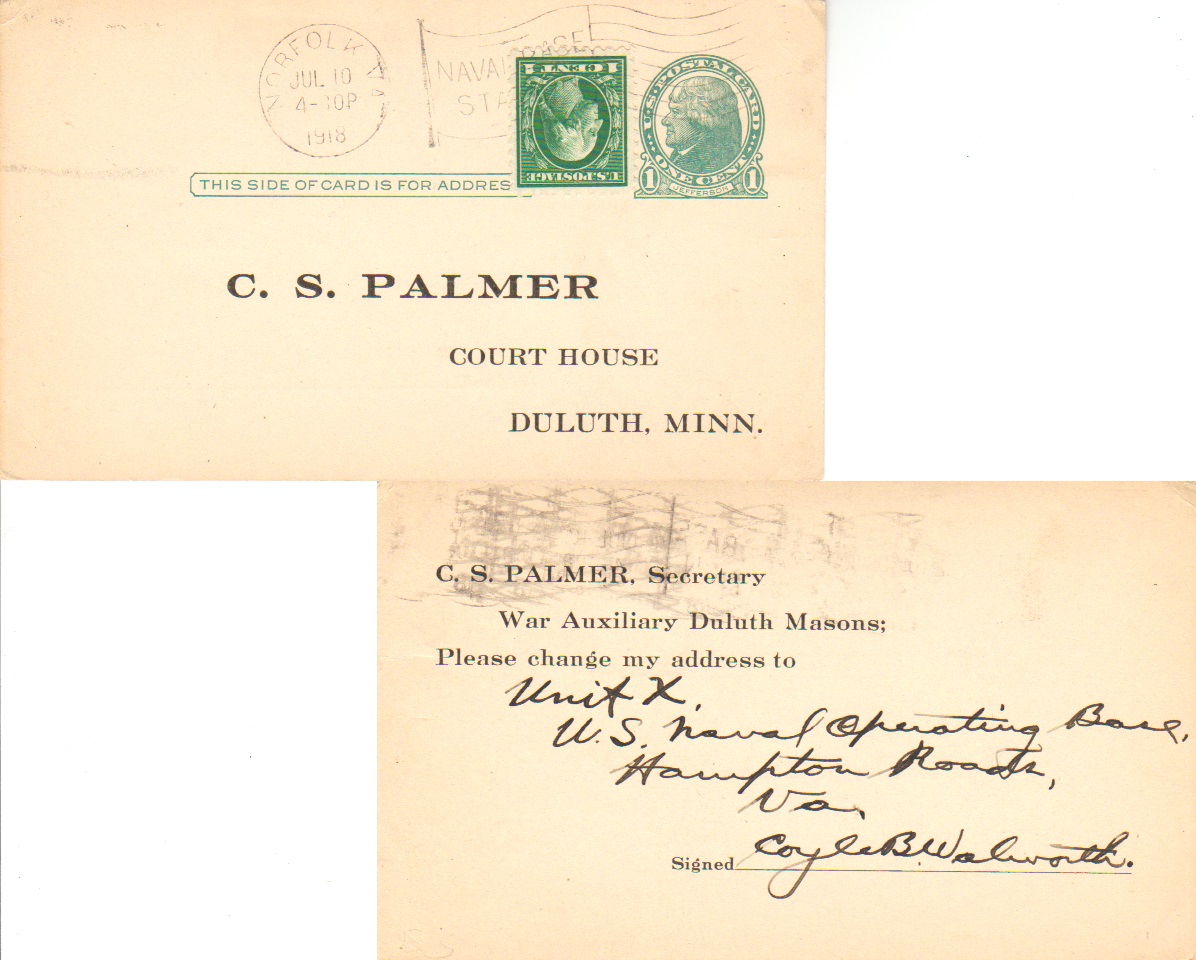 NORFOLK VA.
JUL 10
4-30P
1918
NAVAL BASE
STA
1 CENT 1
U.S. POSTAGE
U.S. POSTAL CARD
ONE CENT
1 JEFFERSON 1
THIS SIDE OF CARD IS FOR ADDRES
C. S. PALMER
COURT HOUSE
DULUTH, MINN.
C. S. PALMER, Secretary
War Auxiliary Duluth Masons;
Please change my address to
Unit X,
U.S. Naval Operating Base,
Hampton Roads,
Va.
Signed Coyle B. Walworth.